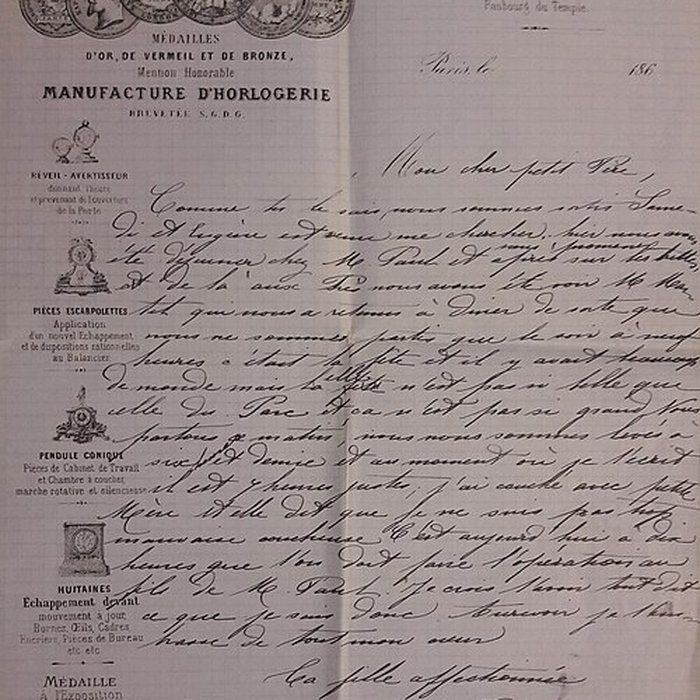 Faubourg du Temple.
MÉDAILLES
D'OR, DE VERMEIL ET DE BRONZE,
Mention Honorable
MANUFACTURE D'HORLOGERIE
BREVETÉE S.G.D.G.
Paris, le 186
RÉVEIL-AVERTISSEUR
donnant l'heure
et prévenant de l'ouverture
de la Porte
PIÈCES ESCARPOLETTES
Application
d'un nouvel Echappement
et de dispositions rationnelles
au Balancier
PENDULE CONIQUE
Pièces de Cabinet de Travail
et Chambre à coucher,
marche rotative et silencieuse
HUITAINES
Échappement devant
mouvement à jour,
Bornes, Œils, Cadres,
Encriers, Pièces de Bureau
etc etc
MÉDAILLE
à l'Exposition
Mon cher petit Père,
Comme tu le sais, nous sommes sortis Same-
di et Eugène est venu me chercher, hier nous avons
été déjeuner chez M. Paul et après nous promener sur les
et de là aux nous avons été voir M.
tel que nous a retenus à diner de sorte que
nous ne sommes partis que le soir à neuf
heures c'était la fête et il y avait beaucoup
de monde mais la n'est pas si belle que
celle du Parc et ça n'est pas si grand Nous
partons ce matin, nous nous sommes levés à
six et demie et au moment où je t'écrit
il est 7 heures justes, j'ai couché avec petite
Mère et elle dit que je ne suis pas trop
mauvaise coucheuse C'est aujourd'hui à dix
heures que l'on doit faire l'opération au
fils de M. Paul. Je crois t'avoir tout dit
ce que je sais donc au revoir je t'em-
brasse de tout mon cœur
Ta fille affectionnée